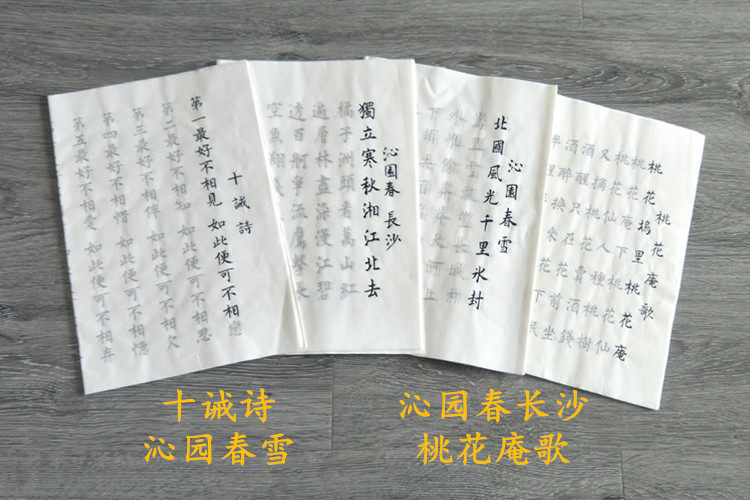 十誡詩
第一最好不相見 如此便可不相戀
第二最好不相知 如此便可不相思
第三最好不相伴 如此便可不相欠
第四最好不相惜 如此便可不相憶
第五最好不相愛 如此便可不相弃
沁园春 長沙
獨立寒秋湘江北去
橘子洲頭看萬山紅
遍層林盡染漫江碧
透百舸爭流鷹擊長
空魚翔
沁园春雪
北國風光千里氷封
萬里雪飄望長城内
外惟餘莽莽大河上
下頓失
桃花庵歌
桃花塢里桃花庵
桃花庵下桃花仙
桃花仙人種桃樹
又摘桃花賣酒錢
酒醒只在花前坐
酒醉換来花下眠
半醒
十诫诗
沁园春雪
沁园春长沙
桃花庵歌